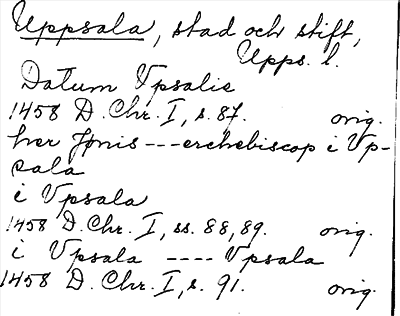 Uppsala, stad och stift,
Upps. l.
Datum Vpsalie
1458 D. Chr. I, s. 87. orig.
her Jönis --- erchebiscop i Vp-
sala
i Vpsala
1458 D. Chr. I, ss. 88, 89. orig.
i Vpsala ---- Vpsala
1458 D. Chr. I, s. 91. orig.